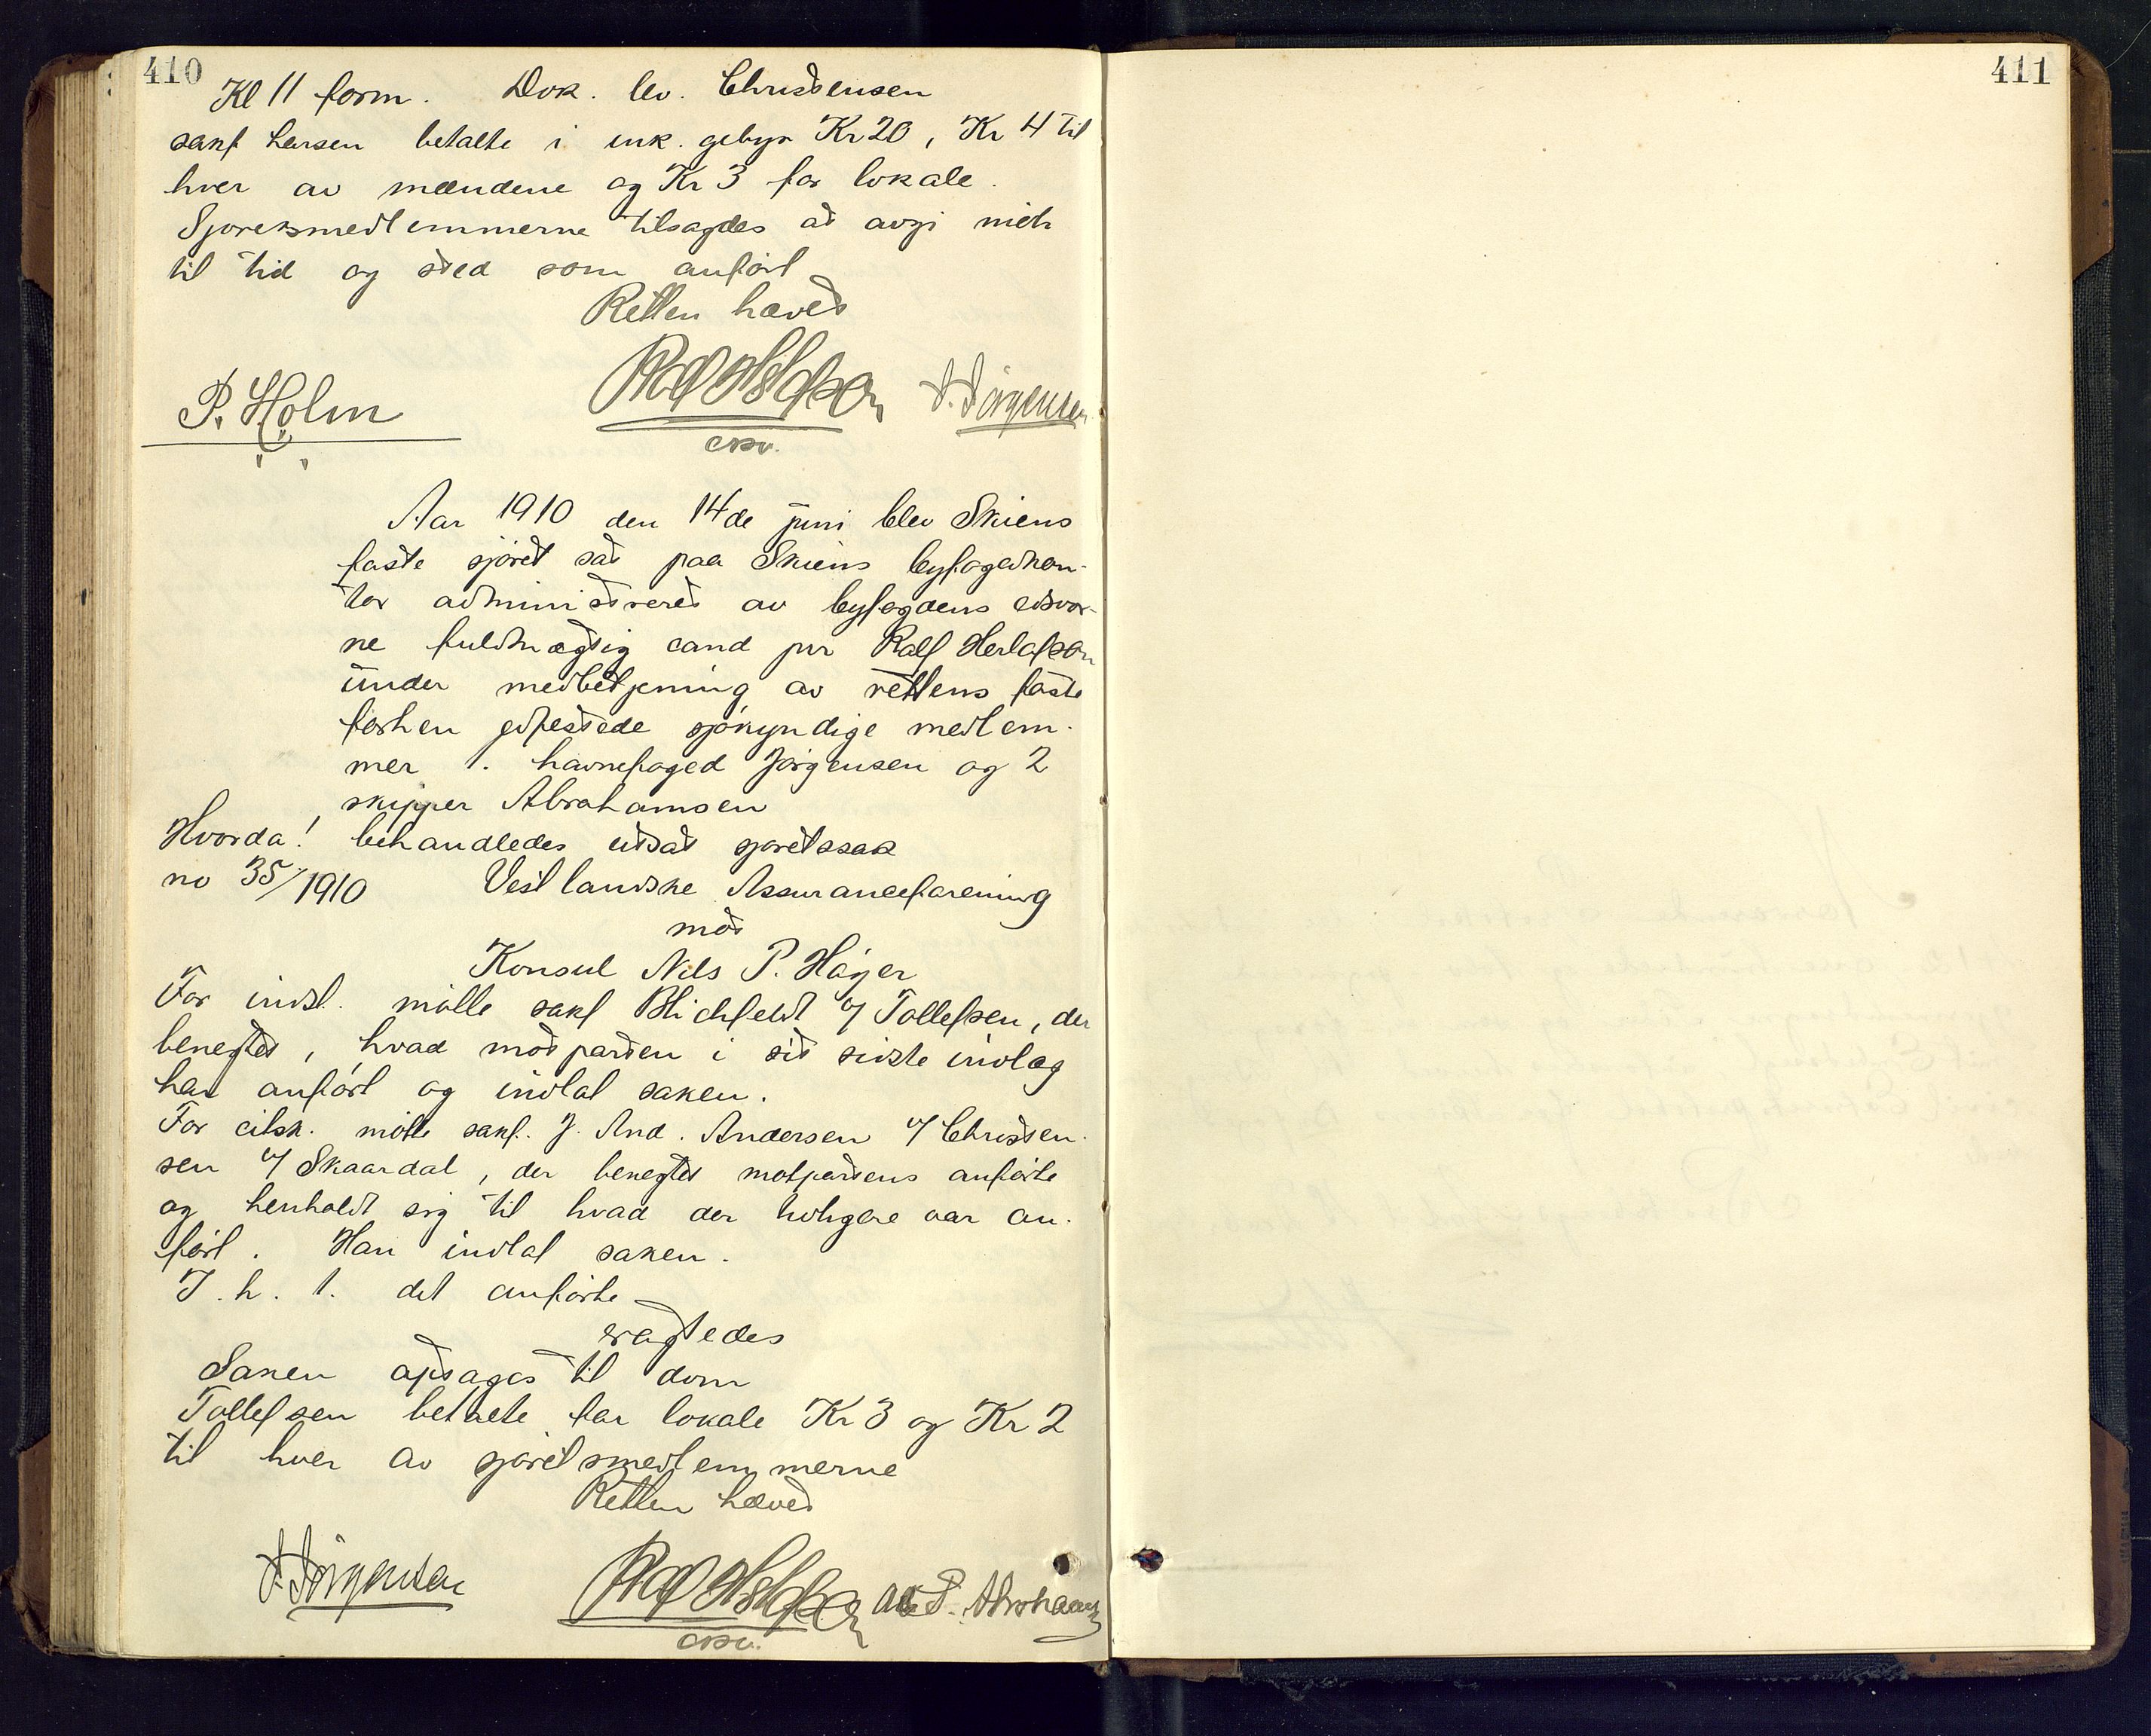 410
Kl 11 form. Dok. lev. Christensen
sakf Larsen betalte i ink. gebyr Kr 20, Kr 4 til
hver av mændene og Kr 3 for lokale.
Sjoretsmedlemmerne tilsagdes at avgi möte
til tid og sted som anfört
Retten hævet
P. Holm
J. Jörgensen
esv.
Aar 1910 den 14de juni blev Skiens
faste sjöret sat paa Skiens byfogedkon-
tor administreret av byfogdens edsvor-
ne fuldmægtig cand jur Ralf Herlofson
under medbetjening av rettens faste
forhen edfestede sjökyndige medlem-
mer 1. havnefoged Jörgensen og 2
skipper Abrahamsen
Hvorda! behandledes utsat sjoretssak
no 35/1910 Vestlandske Assuranceforening
mot
Konsul Nils P. Höyer
For indst. mötte sakf Blichfeldt v/ Tollefsen, der
benegtet, hvad motparten i sit sidste indlæg
har anfört og indlot saken.
For citsk. mötte sakf. J. And. Andersen v/ Christen-
sen v/ Skaardal, der benegtet motpartens anförte
og henholdt sig til hvad der tidligere var an-
fört. Han indlot saken.
I. h. t. det anförte
eragtedes
Saken optages til dom
Tollefsen betalte for lokale Kr 3 og Kr 2
til hver av sjöretsmedlemmerne
Retten hævet
J. Jörgensen
esv.
411